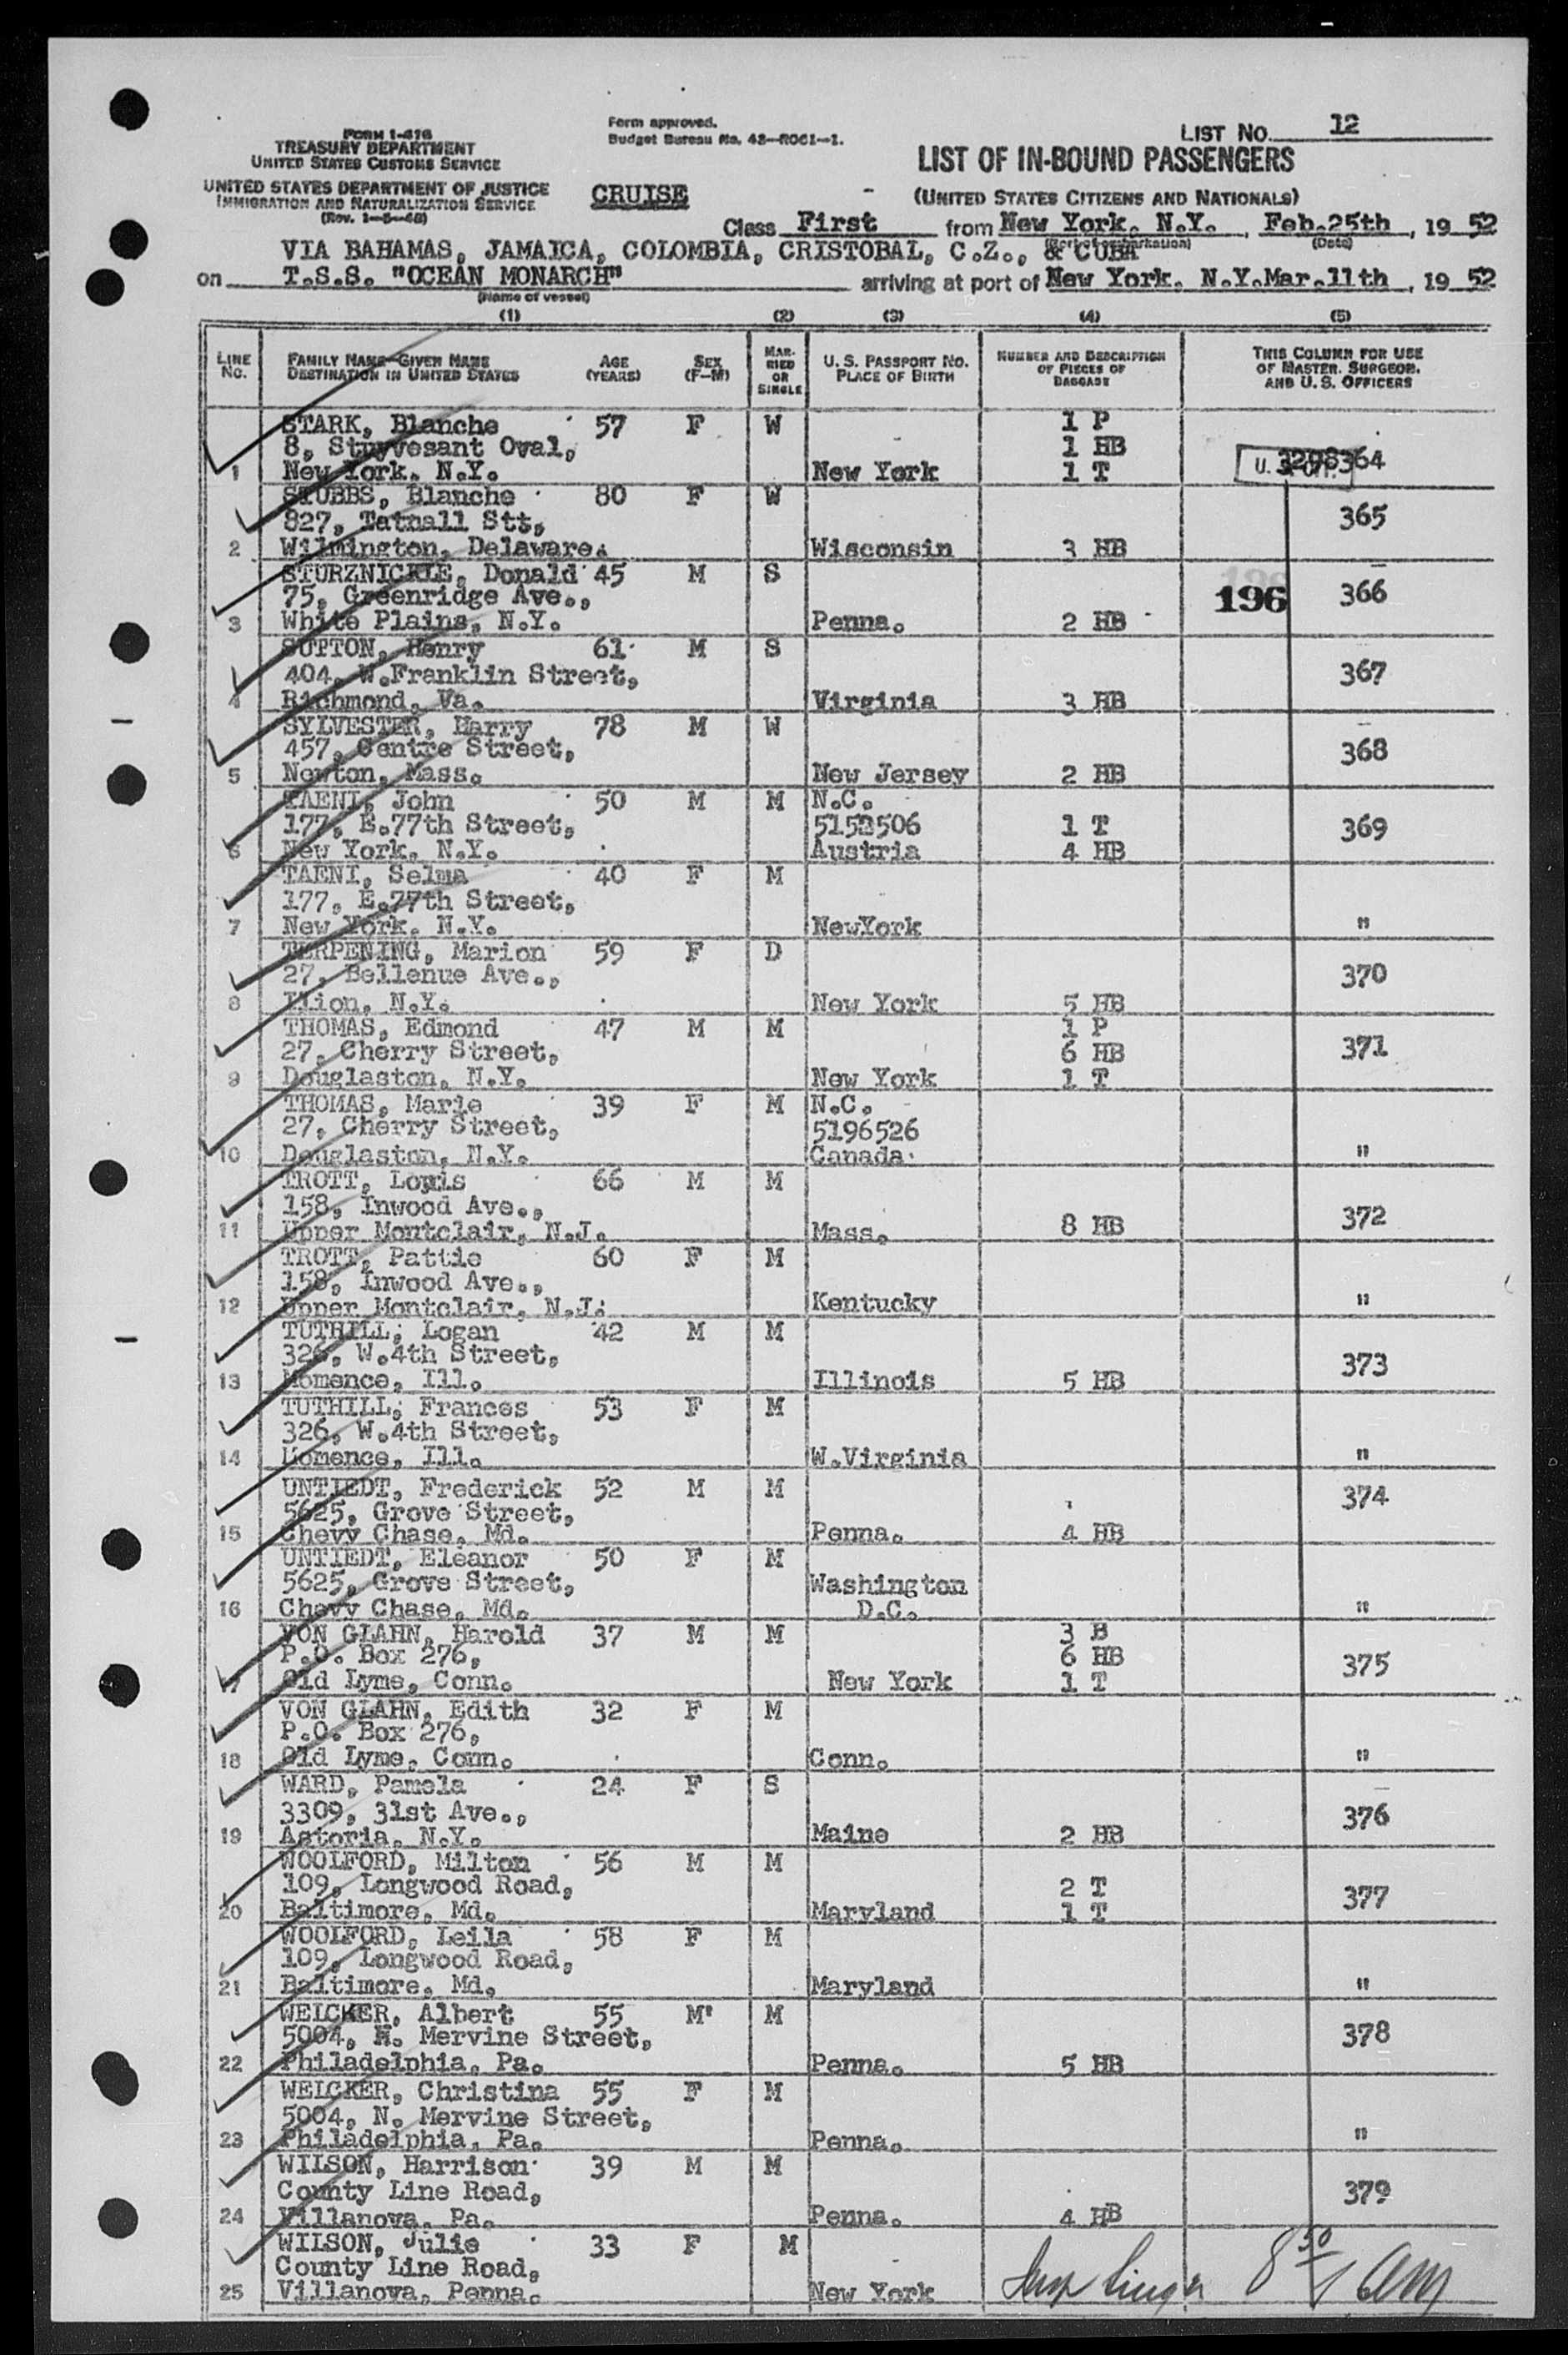 FORM I-416
TREASURY DEPARTMENT
UNITED STATES CUSTOMS SERVICE
UNITED STATES DEPARTMENT OF JUSTICE
IMMIGRATION AND NATURALIZATION SERVICE
(Rev. 1-5-48)
Form approved.
Budget Bureau No. 43-R061-1.
LIST No. 12
LIST OF IN-BOUND PASSENGERS
(UNITED STATES CITIZENS AND NATIONALS)
CRUISE
Class First from New York, N.Y., Feb.25th, 19 52
(Port of embarkation) (Date)
VIA BAHAMAS, JAMAICA, COLOMBIA, CRISTOBAL, C.Z., & CUBA
on T.S.S. "OCEAN MONARCH" arriving at port of New York, N.Y.Mar.11th, 19 52
(Name of vessel)
(1) (2) (3) (4) (5)
LINE No. FAMILY NAME—GIVEN NAME DESTINATION IN UNITED STATES AGE (YEARS) SEX (F-M) MARRIED OR SINGLE U. S. PASSPORT NO. PLACE OF BIRTH NUMBER AND DESCRIPTION OF PIECES OF BAGGAGE THIS COLUMN FOR USE OF MASTER, SURGEON, AND U. S. OFFICERS
STARK, Blanche 57 F W 1 P
8, Stuyvesant Oval, 1 HB
1 New York, N.Y. New York 1 T 3298364
STUBBS, Blanche 80 F W
827, Tatnall Stt, 365
2 Wilmington, Delaware. Wisconsin 3 HB
STURZNICKLE, Donald 45 M S
75, Greenridge Ave., 196 366
3 White Plains, N.Y. Penna. 2 HB
SUTTON, Henry 61 M S
404, W.Franklin Street, 367
4 Richmond, Va. Virginia 3 HB
SYLVESTER, Harry 78 M W
457, Centre Street, 368
5 Newton, Mass. New Jersey 2 HB
TAENI, John 50 M M N.C.
177, E.77th Street, 5152506 1 T 369
6 New York, N.Y. Austria 4 HB
TAENI, Selma 40 F M
177, E.77th Street,
7 New York, N.Y. NewYork "
TERPENING, Marion 59 F D
27, Bellenue Ave., 370
8 Ilion, N.Y. New York 5 HB
THOMAS, Edmond 47 M M 1 P
27, Cherry Street, 6 HB 371
9 Douglaston, N.Y. New York 1 T
THOMAS, Marie 39 F M N.C.
27, Cherry Street, 5196526
10 Douglaston, N.Y. Canada "
TROTT, Louis 66 M M
158, Inwood Ave., 372
11 Upper Montclair, N.J. Mass. 8 HB
TROTT, Pattie 60 F M
158, Inwood Ave.,
12 Upper Montclair, N.J. Kentucky "
TUTHILL, Logan 42 M M
326, W.4th Street, 373
13 Momence, Ill. Illinois 5 HB
TUTHILL, Frances 53 F M
326, W.4th Street,
14 Momence, Ill. W.Virginia "
UNTIEDT, Frederick 52 M M
5625, Grove Street, 374
15 Chevy Chase, Md. Penna. 4 HB
UNTIEDT, Eleanor 50 F M
5625, Grove Street, Washington
16 Chevy Chase, Md. D.C. "
VON GLAHN, Harold 37 M M 3 B
P.O. Box 276, 6 HB 375
17 Old Lyme, Conn. New York 1 T
VON GLAHN, Edith 32 F M
P.O. Box 276,
18 Old Lyme, Conn. Conn. "
WARD, Pamela 24 F S
3309, 31st Ave., 376
19 Astoria, N.Y. Maine 2 HB
WOOLFORD, Milton 56 M M
109, Longwood Road, 2 T 377
20 Baltimore, Md. Maryland 1 T
WOOLFORD, Leila 58 F M
109, Longwood Road,
21 Baltimore, Md. Maryland "
WEICKER, Albert 55 M' M
5004, N. Mervine Street, 378
22 Philadelphia, Pa. Penna. 5 HB
WEICKER, Christina 55 F M
5004, N. Mervine Street,
23 Philadelphia, Pa. Penna. "
WILSON, Harrison 39 M M
County Line Road, 379
24 Villanova, Pa. Penna. 4 HB
WILSON, Julie 33 F M
County Line Road, 8 50 am
25 Villanova, Penna. New York